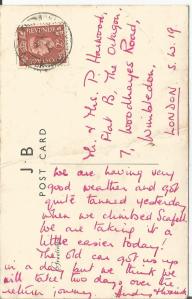 REVENUE
J B
POST CARD
Mr & Mrs. P. Harwood,
Flat B, The Octagon,
7, Woodhayes Road,
Wimbledon,
LONDON S.W.19
We are having very
good weather and got
quite tanned yesterday
when we climbed Scafell
We are taking it a
little easier today!
The old car got us up
in a day but we think we
will take two days over the
return journey.